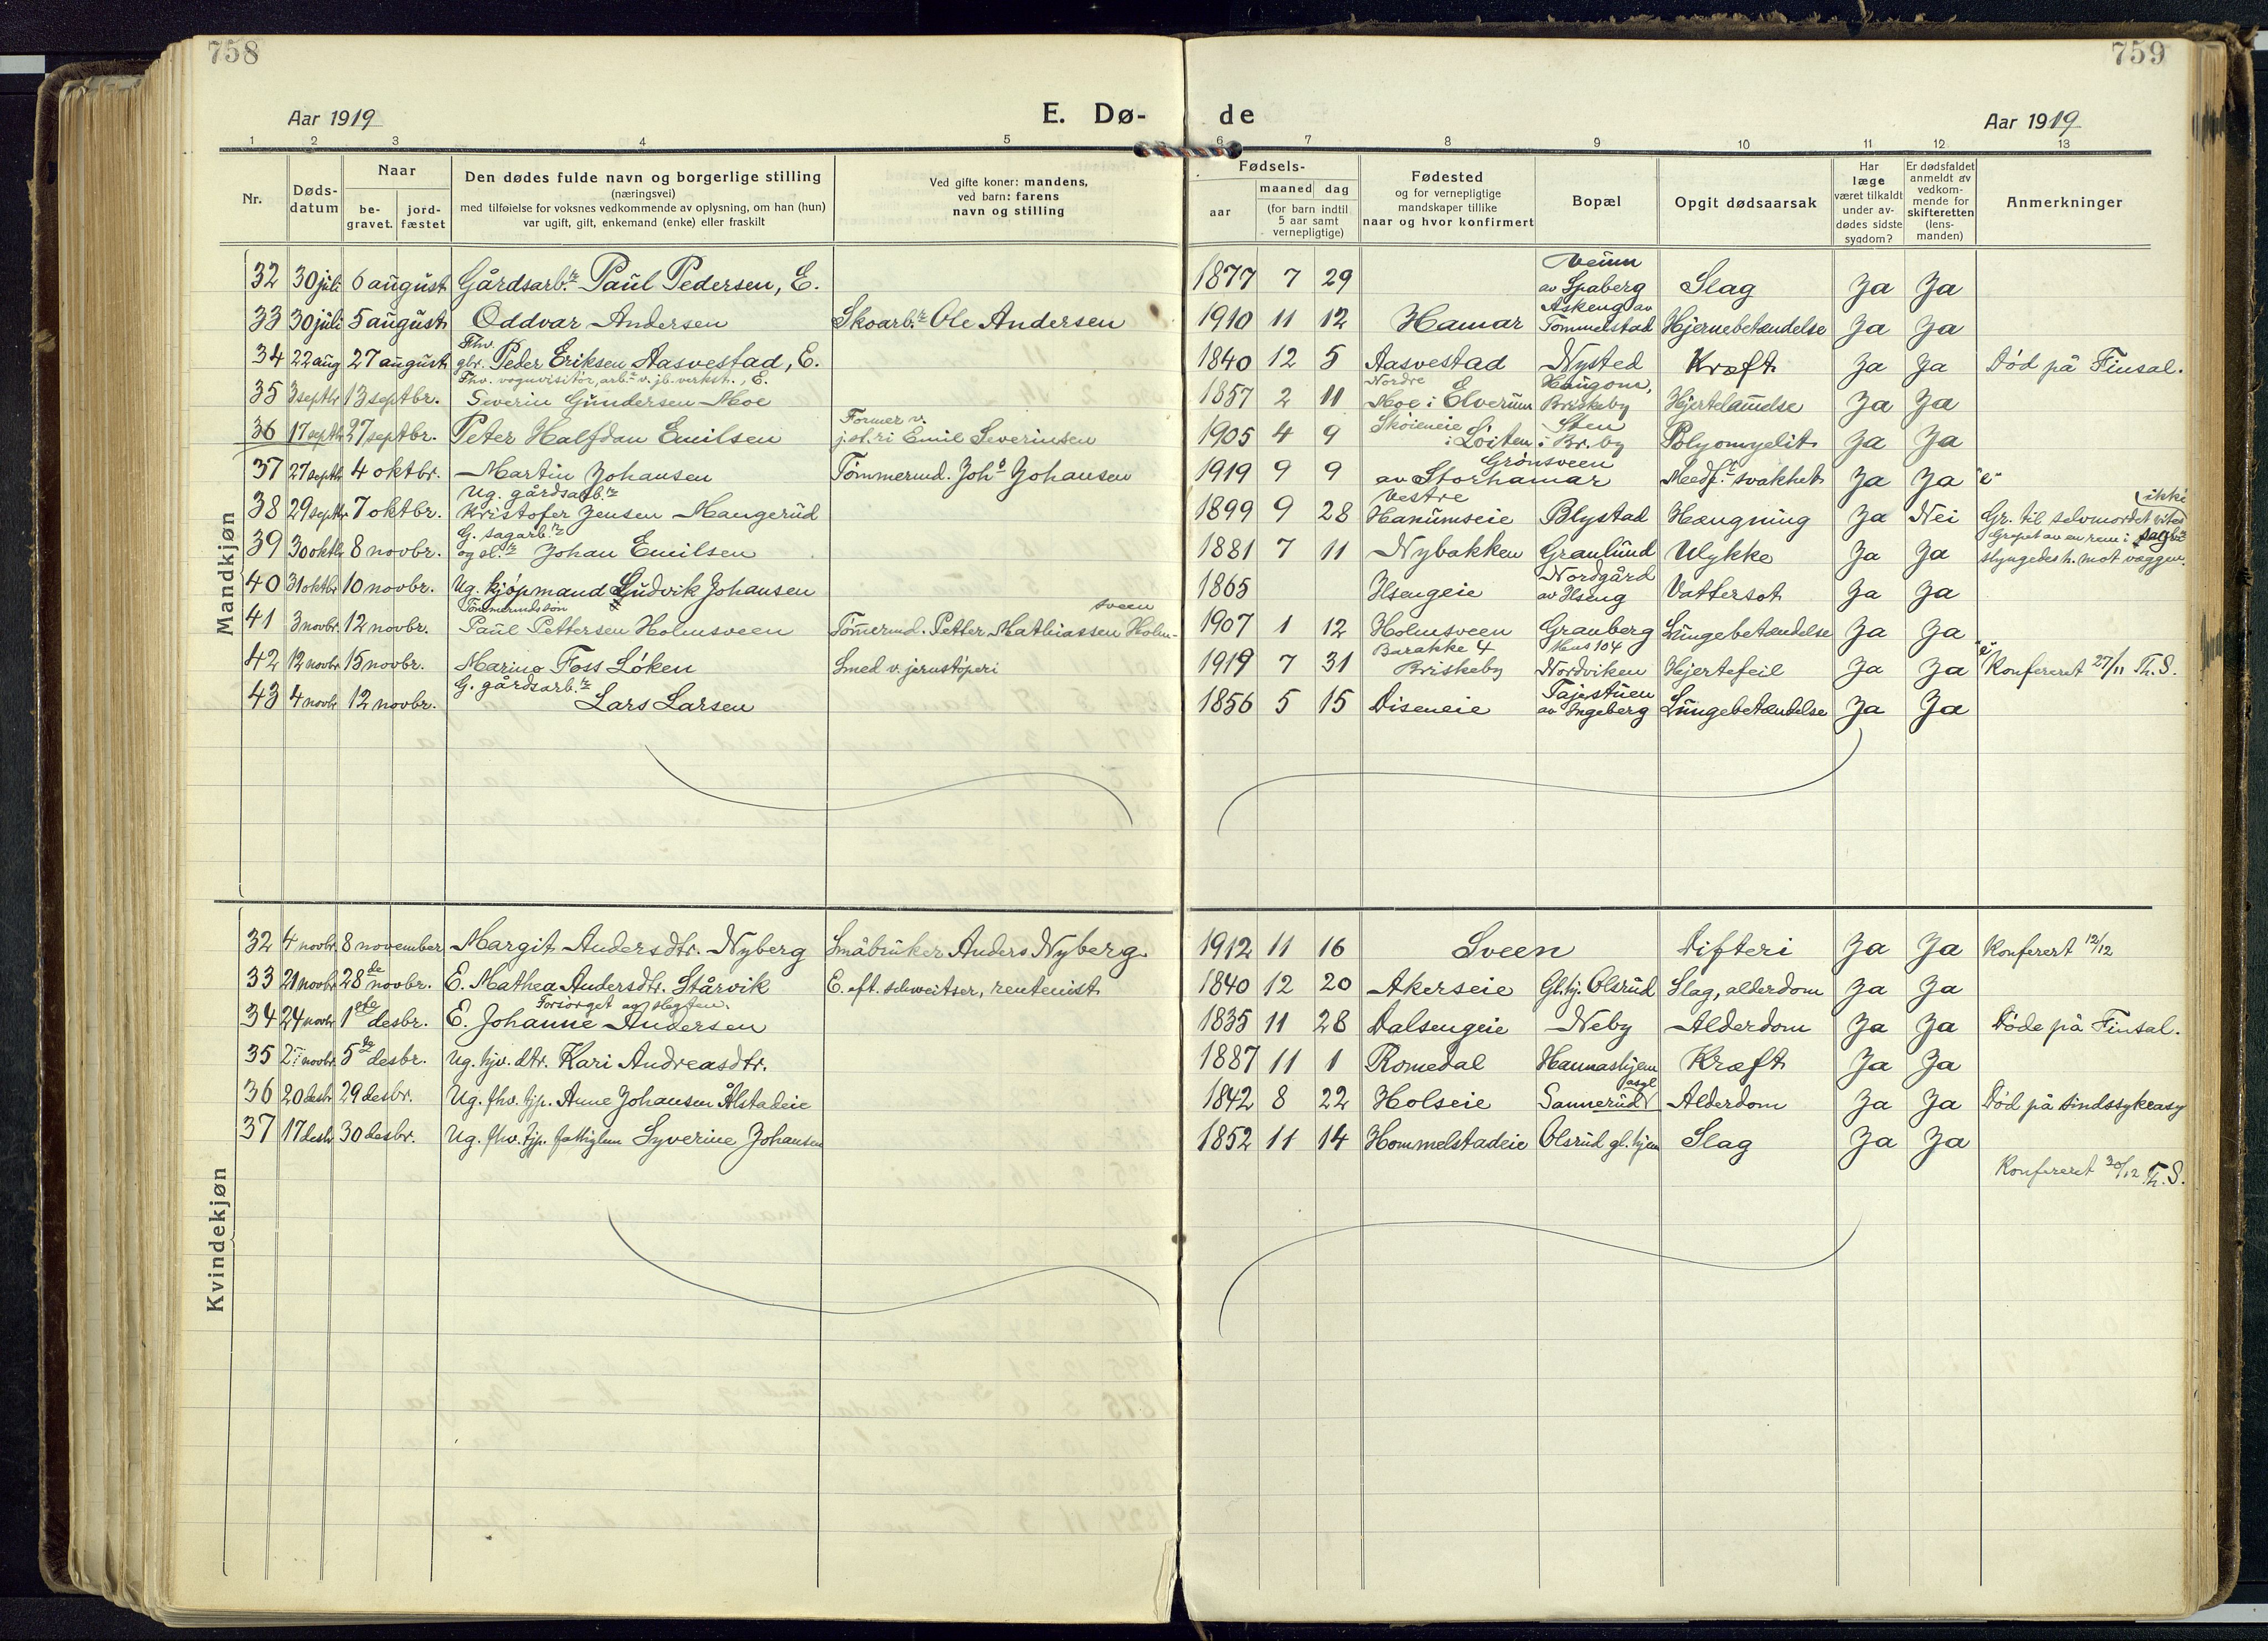 758
759
Aar 1919
E. Dø-
de
Aar 1919
1 2 3 4 5 6 7 8 9 10 11 12 13
Nr.
Døds-
datum
Naar
be-
gravet.
jord-
fæstet
Den dødes fulde navn og borgerlige stilling
(næringsvei)
med tilføielse for voksnes vedkommende av oplysning, om han (hun)
var ugift, gift, enkemand (enke) eller fraskilt
Ved gifte koner: mandens,
ved barn: farens
navn og stilling
Fødsels-
aar
maaned dag
(for barn indtil
5 aar samt
vernepligtige)
Fødested
og for vernepligtige
mandskaper tillike
naar og hvor konfirmert
Bopæl
Opgit dødsaarsak
Har
læge
været tilkaldt
under av-
dødes sidste
sygdom?
Er dødsfaldet
anmeldt av
vedkom-
mende for
skifteretten
(lens-
manden)
Anmerkninger
Mandkjøn
32 30 juli 6 august Gårdsarb.r Paul Pedersen, E. 1877 7 29 av Spaberg Slag Ja Ja
Askeng av
33 30 juli 5 august Oddvar Andersen Skoarb.r Ole Andersen 1910 11 12 Hamar Tommelstad Hjernebetændelse Ja Ja
Fhv.
34 22 aug 27 august gbr. Peder Eriksen Aasvestad, E. 1840 12 5 Aasvestad Nysted Kræft Ja Ja Død på Finsal.
Fhv. vognvisitør, arb.r v. jb. verkst., E. Nordre Haugom,
35 3 septbr 13 septbr. Severin Gundersen Moe 1857 2 11 Moe i Elverum Briskeby Hjertelamelse Ja Ja
Former v. Skoieneie Sten
36 17 septb 27 septbr. Peter Halfdan Emilsen j.st.ri Emil Severinsen 1905 4 9 i Løiten i Br.by Polyomyelit Ja Ja
Grønsveen
37 27 septb 4 oktbr. Martin Johansen Tømmermd. Johs Johansen 1919 9 9 av Storhamar Medf. svakhet Ja Ja "e"
Ug. gårdsarb.r Vestre ikke
38 29 septbr 7 oktbr. Kristofer Jensen Mangerud 1899 9 28 Hanumseie Blystad Hængning Ja Nei Gr. til selvmordet vites
G. sagarb.r Grepet av en rem i sagbr.
39 30 oktb 8 novbr. og sl.r Johan Emilsen 1881 7 11 Nybakken Granlund Ulykke Ja Ja slyngedes h. mot væggen.
Nordgård
40 31 oktbr 10 novbr. Ug. kjøpmand Ludvik Johansen 1865 Ilsengeie av Ilseng Vattersot Ja Ja
Tømmermandssøn sveen
41 3 novbr. 12 novbr. Paul Pettersen Holmsveen Tømermd. Petter Mathiassen Holm- 1907 1 12 Holmsveen Granberg Lungebetændelse Ja Ja
Barakke 4 Hus 104 "e"
42 12 novbr 15 novbr. Marino Foss Løken Smed v. jernstøperi 1919 7 31 Briskeby Nordviken Hjertefeil Ja Ja Konfereret 27/11 Th. S.
G. gårdsarb.r Tajestuen
43 4 novbr 12 novbr. Lars Larsen 1856 5 15 Diseneie av Ingeberg Lungebetændelse Ja Ja
Kvindekjøn
32 4 novbr. 8 november Margit Andersdtr. Nyberg Småbruker Anders Nyberg 1912 11 16 Sveen Difteri Ja Ja Konferert 12/12
33 21 novbr 28de novbr. E. Mathea Andersdtr. Stårvik E. eft. schweitser, rentenist 1840 12 20 Akerseie Gl.hj. Olsrud Slag, alderdom Ja Ja
Forsørget av slegten.
34 24 novbr 1ste desbr. E. Johanne Andersen 1835 11 28 Dalsengeie Neby Alderdom Ja Ja Døde på Finsal.
35 27 novbr 5te desbr. Ug. hjv. dtr. Kari Andreasdtr. 1887 11 1 Romedal Hannashjem Kræft Ja Ja
asyl
36 20 desbr 29 desbr. Ug. fhv. tjp. Anne Johansen Ålstadeie 1842 8 22 Holseie Sannerud Alderdom Ja Ja Død på sindssykeasy
37 17 desbr 30 desbr. Ug. fhv. tjp. fattiglem Syverine Johansen 1852 11 14 Hommelstadeie Olsrud gl. hjem Slag Ja Ja
Konfereret 30/12 Th. S.